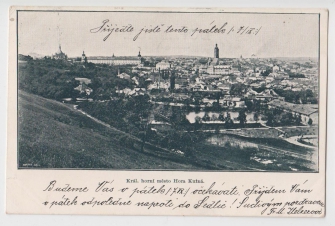 Přijeďte jistě tento pátek
Král. horní město Hora Kutná.
Budeme Vás v pátek očekávati. Přijdem Vám
v pátek odpoledne naproti do Sedlic! Srdečným pozdravem